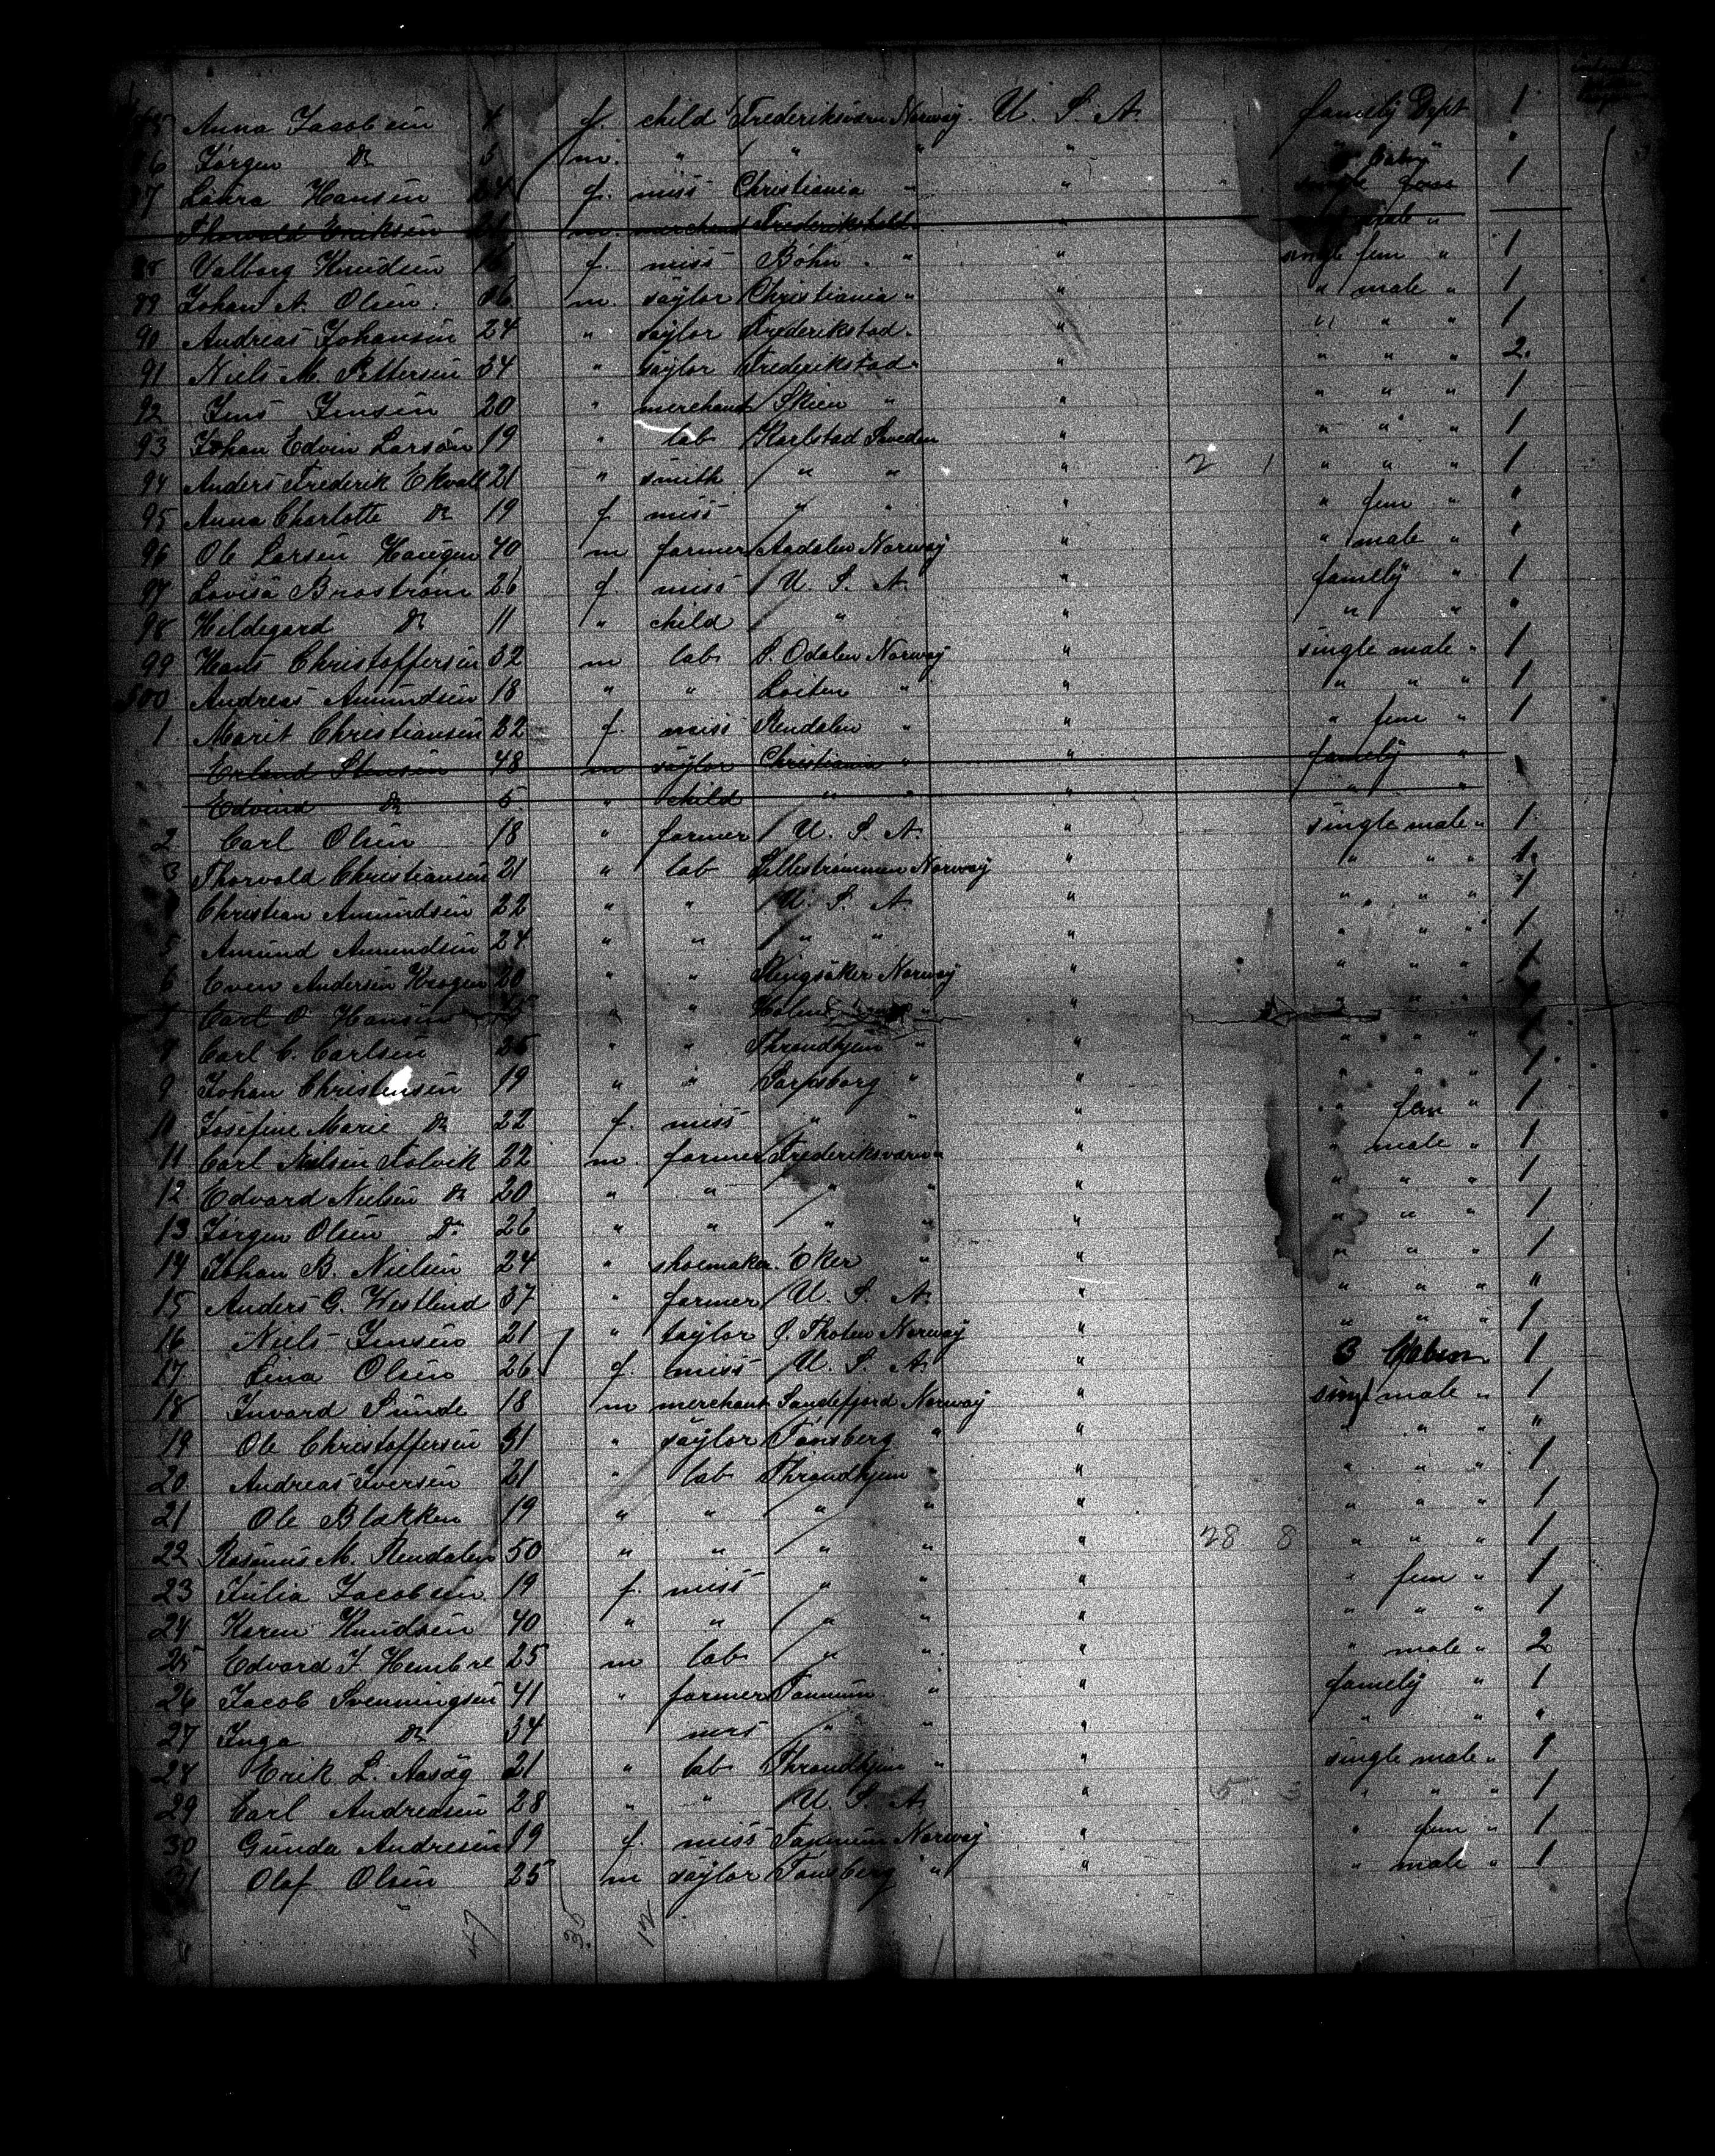 85 Anna Jacobsen 4 f. child Frederiksværn Norway. U. S. A. famely Dept 1
86 Jørgen Do 5 m. " " " " " "
87 Laura Hansen 24 f. miss Christiania " " 1
Thorvald Eriksen m merchand Frederikshald " " male "
88 Valborg Knudsen f. miss Bøhn " " single fem " 1
89 Johan A. Olsen 36 m. saÿlor Christiania " " " male " 1
90 Andreas Johansen 24 " saÿlor Frederikstad " " " " " 1
91 Niels M. Pettersen 34 " saÿlor Frederikstad " " " " " 2.
92 Jens Jensen 20 " merchant Skien " " " " " 1
93 Johan Edvin Larsøn 19 " lab Karlstad Sweden " " " " 1
94 Anders Frederik Ekvall 21 " smith " " " 2 1 " " " 1
95 Anna Charlotte Do 19 f miss " " " " fem " "
96 Ole Larsen Haugen 40 m farmer Aadalen Norway " " male " "
97 Lovisa Brostrøm 26 f. miss U. S. A. " famely " 1
98 Hildegard Do 11 " child " " " " "
99 Hans Christoffersen 32 m lab S. Odalen Norway " single male " 1
500 Andreas Amundsen 18 " " Loiten " " " " " 1
1 Marit Christiansen 22 f. miss Rendalen " " " fem " 1
Erland Stensen 48 m saÿlor Christiania " " famely "
Edvind Do 5 " child " " " " "
2 Carl Olsen 18 " farmer U. S. A. " single male " 1
3 Thorvald Christiansen 21 " lab Lillestrømmen Norway " " " " 1
4 Christian Amundsen 22 " " U. S. A. " " " " 1
5 Amund Amundsen 24 " " " " " " " " 1
6 Even Andersen Krogen 20 " " Ringsaker Norway " " " " 1
7 Carl O. Hansen " " " " " " "
8 Carl C. Carlsen 25 " " Throndhjem " " " " " 1
9 Johan Christensen 19 " " Sarpsborg " " " " " 1
10 Josefine Marie Do 22 f. miss " " " " fem " 1
11 Carl Nielsen Tolvik 22 m. farmer Frederiksværn " " " male " 1
12 Edvard Nielsen Do 20 " " " " " " " " 1
13 Jørgen Olsen Do 26 " " " " " " " " 1
14 Johan B. Nielsen 24 " shoemaker Eker " " " " " 1
15 Anders G. Westlund 37 " farmer U. S. A. " " " " "
16 Niels Jensen 21 " taÿlor Ø. Thoten Norway " " " " 1
17 Lina Olsen 26 f. miss U. S. A. " 3 Caben 1
18 Invard Sunde 18 m merchant Sandefjord Norway " singl male " 1
19 Ole Christoffersen 31 " saÿlor Tønsberg " " " " " "
20 Andreas Iversen 21 " lab Throndhjem " " " " " 1
21 Ole Blakken 19 " " " " " " " " 1
22 Rasmus M. Rendalen 50 " " " " " 28 8 " " " 1
23 Julia Jacobsen 19 f. miss " " " " fem " 1
24 Karen Knudsen 40 " " " " " " " " 1
25 Edvard J. Hembre 25 m lab " " " " male " 2
26 Jacob Svenningsen 41 " farmer Tannum " " famely " 1
27 Inga Do 34 mrs " " " " " "
28 Erik L. Aasag 21 " lab Throndhjem " " single male " 1
29 Carl Andreasen 28 " " U. S. A. " 5 3 " " " 1
30 Gunda Andresen 19 f. miss Tannum Norway " " fem " 1
31 Olaf Olsen 25 m saÿlor Tønsberg " " " male " 1
47 35 12